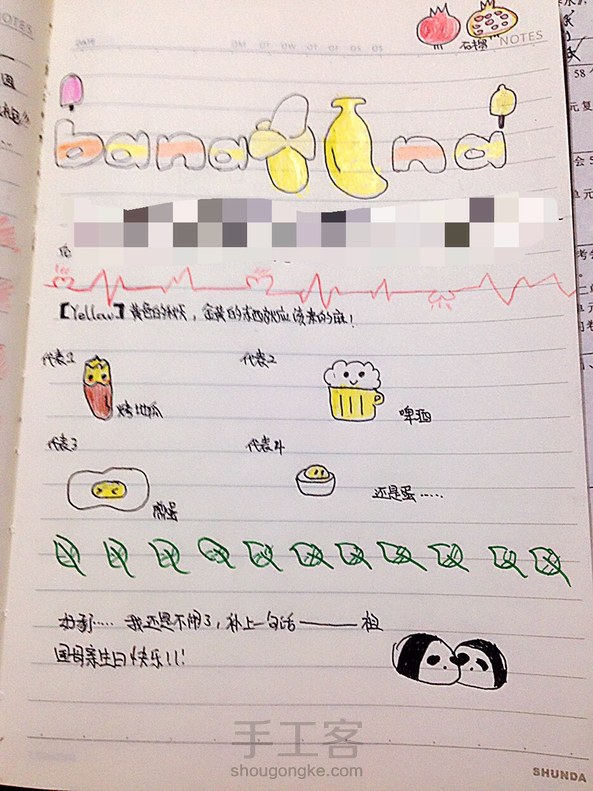 石榴 NOTES
banana
【Yellow】黄色的秋天，金黄的东西就应该来的猛！
代表1 代表2
烤地瓜 啤酒
代表3 代表4
煎蛋 还是蛋……
我还是不闲了，补上一句话———祖
国母亲生日快乐！！
手工客
shougongke.com
SHUNDA